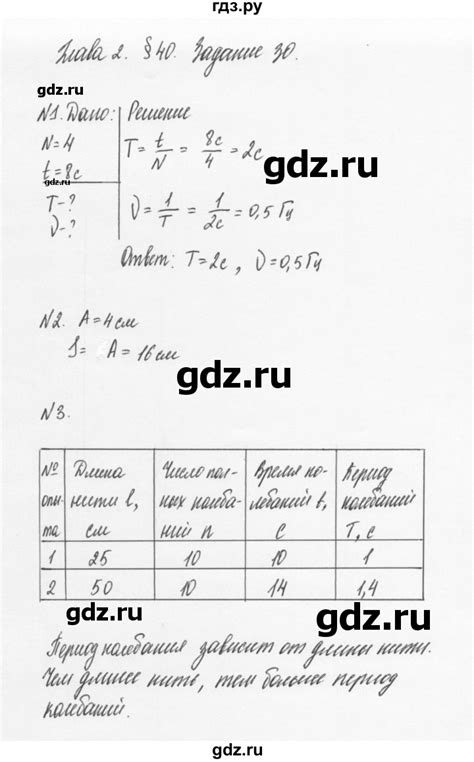 гдз.ру
Глава 2. § 40. Задание 30.
gdz.ru
№1. Дано: | Решение
N=4
t=8c
T-?
ν-?
T = t/N = 8c/4 = 2c
gdz.ru
ν = 1/T = 1/2c = 0,5 Гц
Ответ: T=2c, ν=0,5 Гц
№2. A=4см
S= A=16см
gdz.ru
№3.
№ опыта | Длина нити l, см | Число полных колебаний n | Время колебаний t, с | Период колебаний T, с
gdz.ru
1 | 25 | 10 | 10 | 1
2 | 50 | 10 | 14 | 1,4
gdz.ru
gdz.ru
Период колебания зависит от длины нити.
Чем длинее нить, тем больше период
колебаний.
gdz.ru
gdz.ru